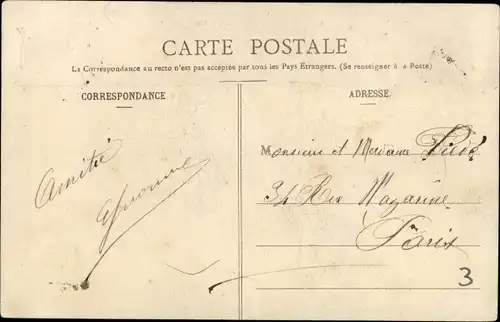 CARTE POSTALE
La Correspondance au recto n'est pas acceptée par tous les Pays Etrangers. (Se renseigner à a Poste)
CORRESPONDANCE
ADRESSE
Amitié
Monsieur et Madame
34 Rue Mazarine
Paris
3